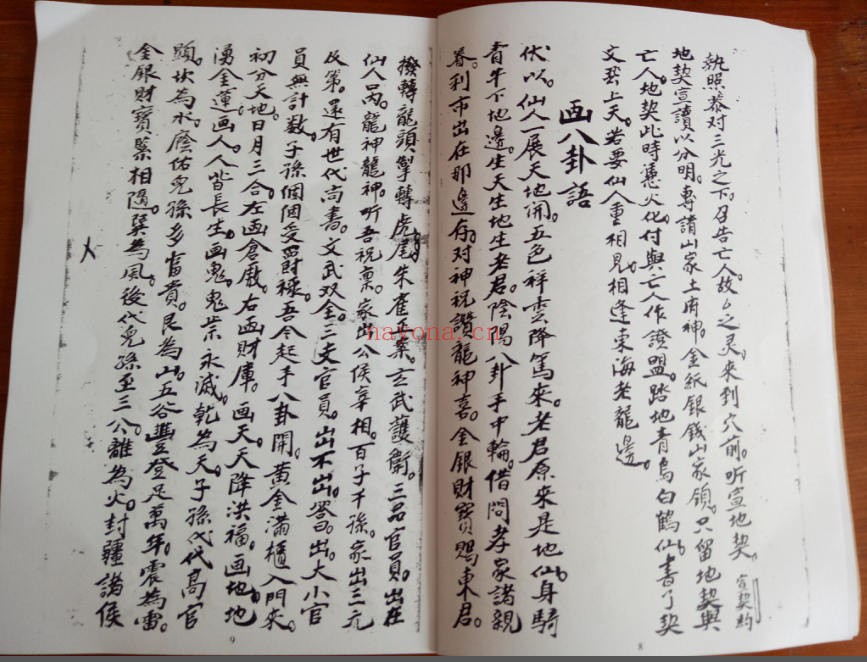 执照恭对三光之下。召告亡人故ム之灵。来到穴前。听宣地契。宣契约
地契宣讀以分明。專請山家土府神。金紙銀錢山家領。只留地契與
亡人。地契此時憑火化。付與亡人作證盟。踏地青鸟白鶴仙。書了契
文契上天。若要仙人重相見。相逢東海老龍邊。
画八卦語
伏以。仙人一展天地開。五色祥雲降篤来。老君原来是地仙。身騎
青牛下地邊。生天生地生老君。陰陽八卦手中輪。借問孝家諸親
眷。利市出在那邊存。对神祝讚龍神喜。金銀財寶賜東君。
8
撥轉龍頭掣轉虎尾。朱雀正案。玄武護衛。三品官員。出在
仙人丙。龍神龍神。听吾祝禀。家出公侯宰相。百子千孫。家出三元
及第。還有世代尚書。文武双全。三支官員。出不出。答曰出。大小官
員無計数。子孫個個受爵禄。吾今起手八卦開。黄金滿櫃入門来。
初分天地日月三合。左画倉廒。右画財庫。画天。天降洪福。画地。地
湧金蓮。画人。人皆長生。画鬼。鬼祟永滅。乾為天。子孫代代高官
顕。坎為水。蔭佑兒孫多富貴。艮為山。五谷豐登足萬年。震為雷。
金銀財寶緊相隨。巽為風。後代兒孫至三公。離為火。封疆諸侯
9
nayona.cn